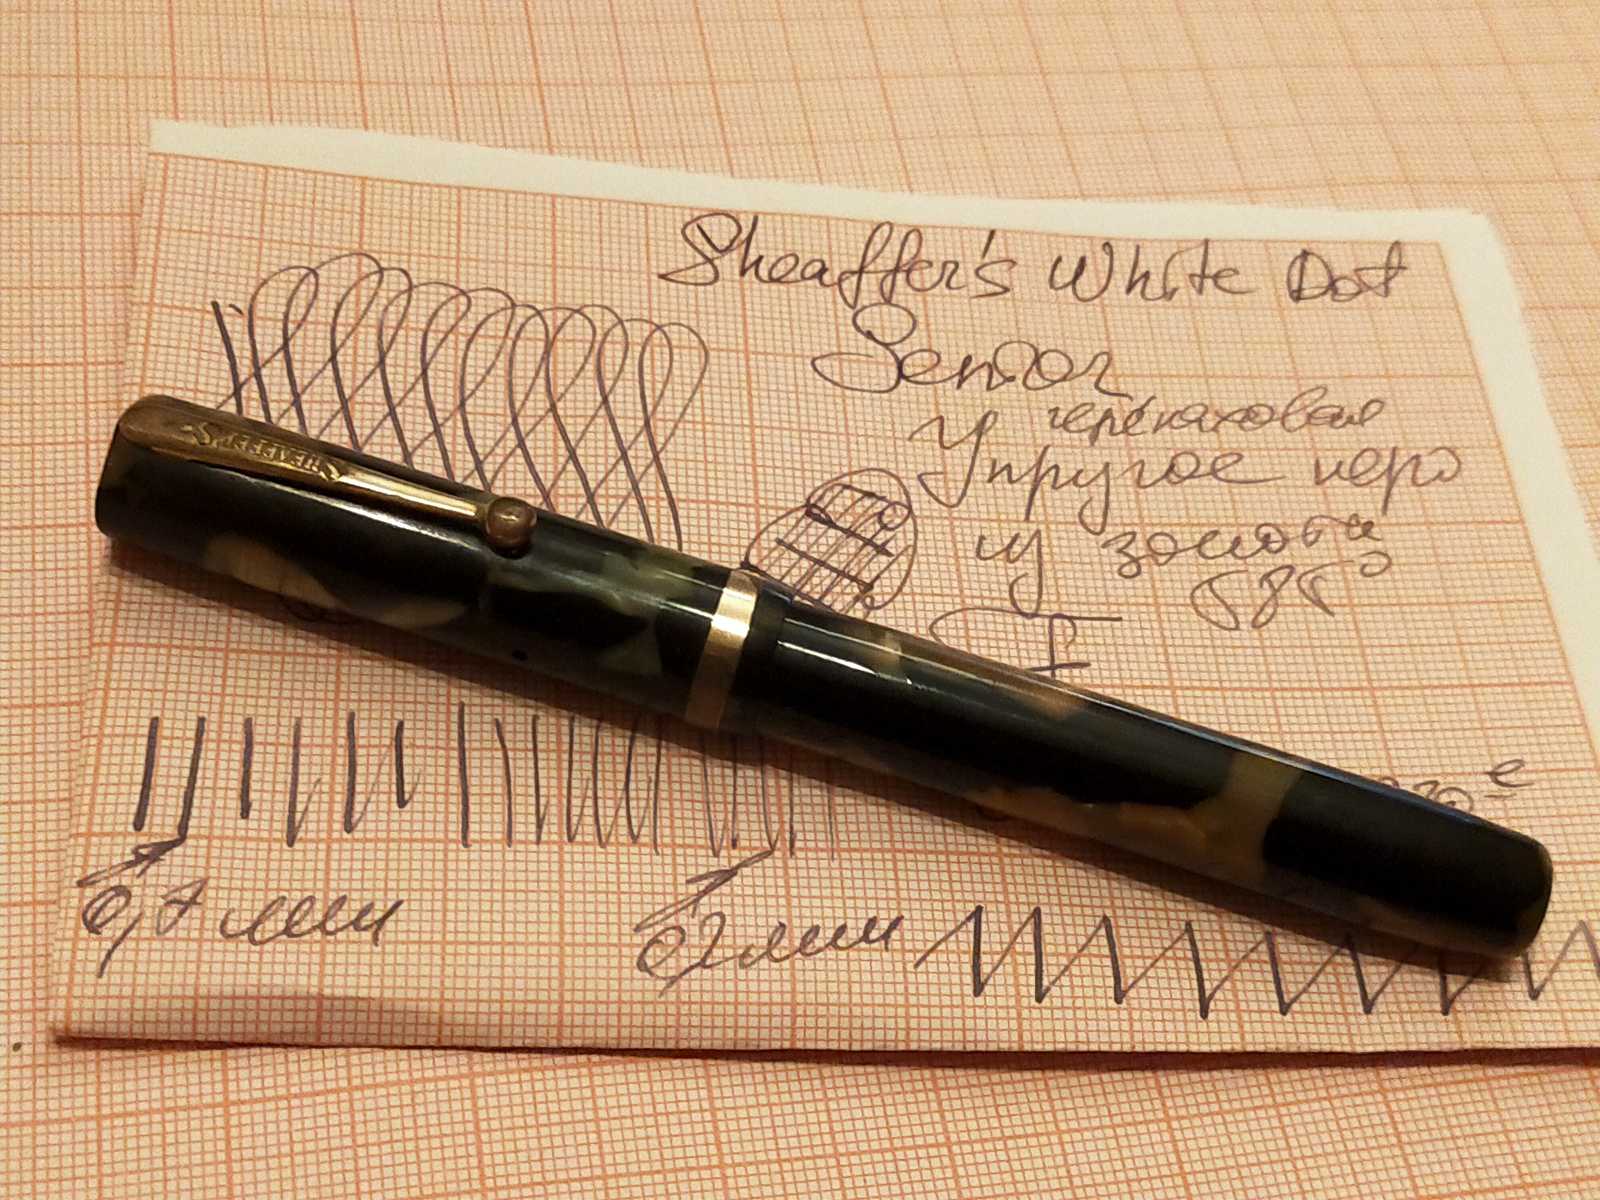 Sheaffer's White Dot
Senior
черепаховая
Упругое перо
из золота
585°
F
SHEAFFER'S
0,7 мм
0,2 мм